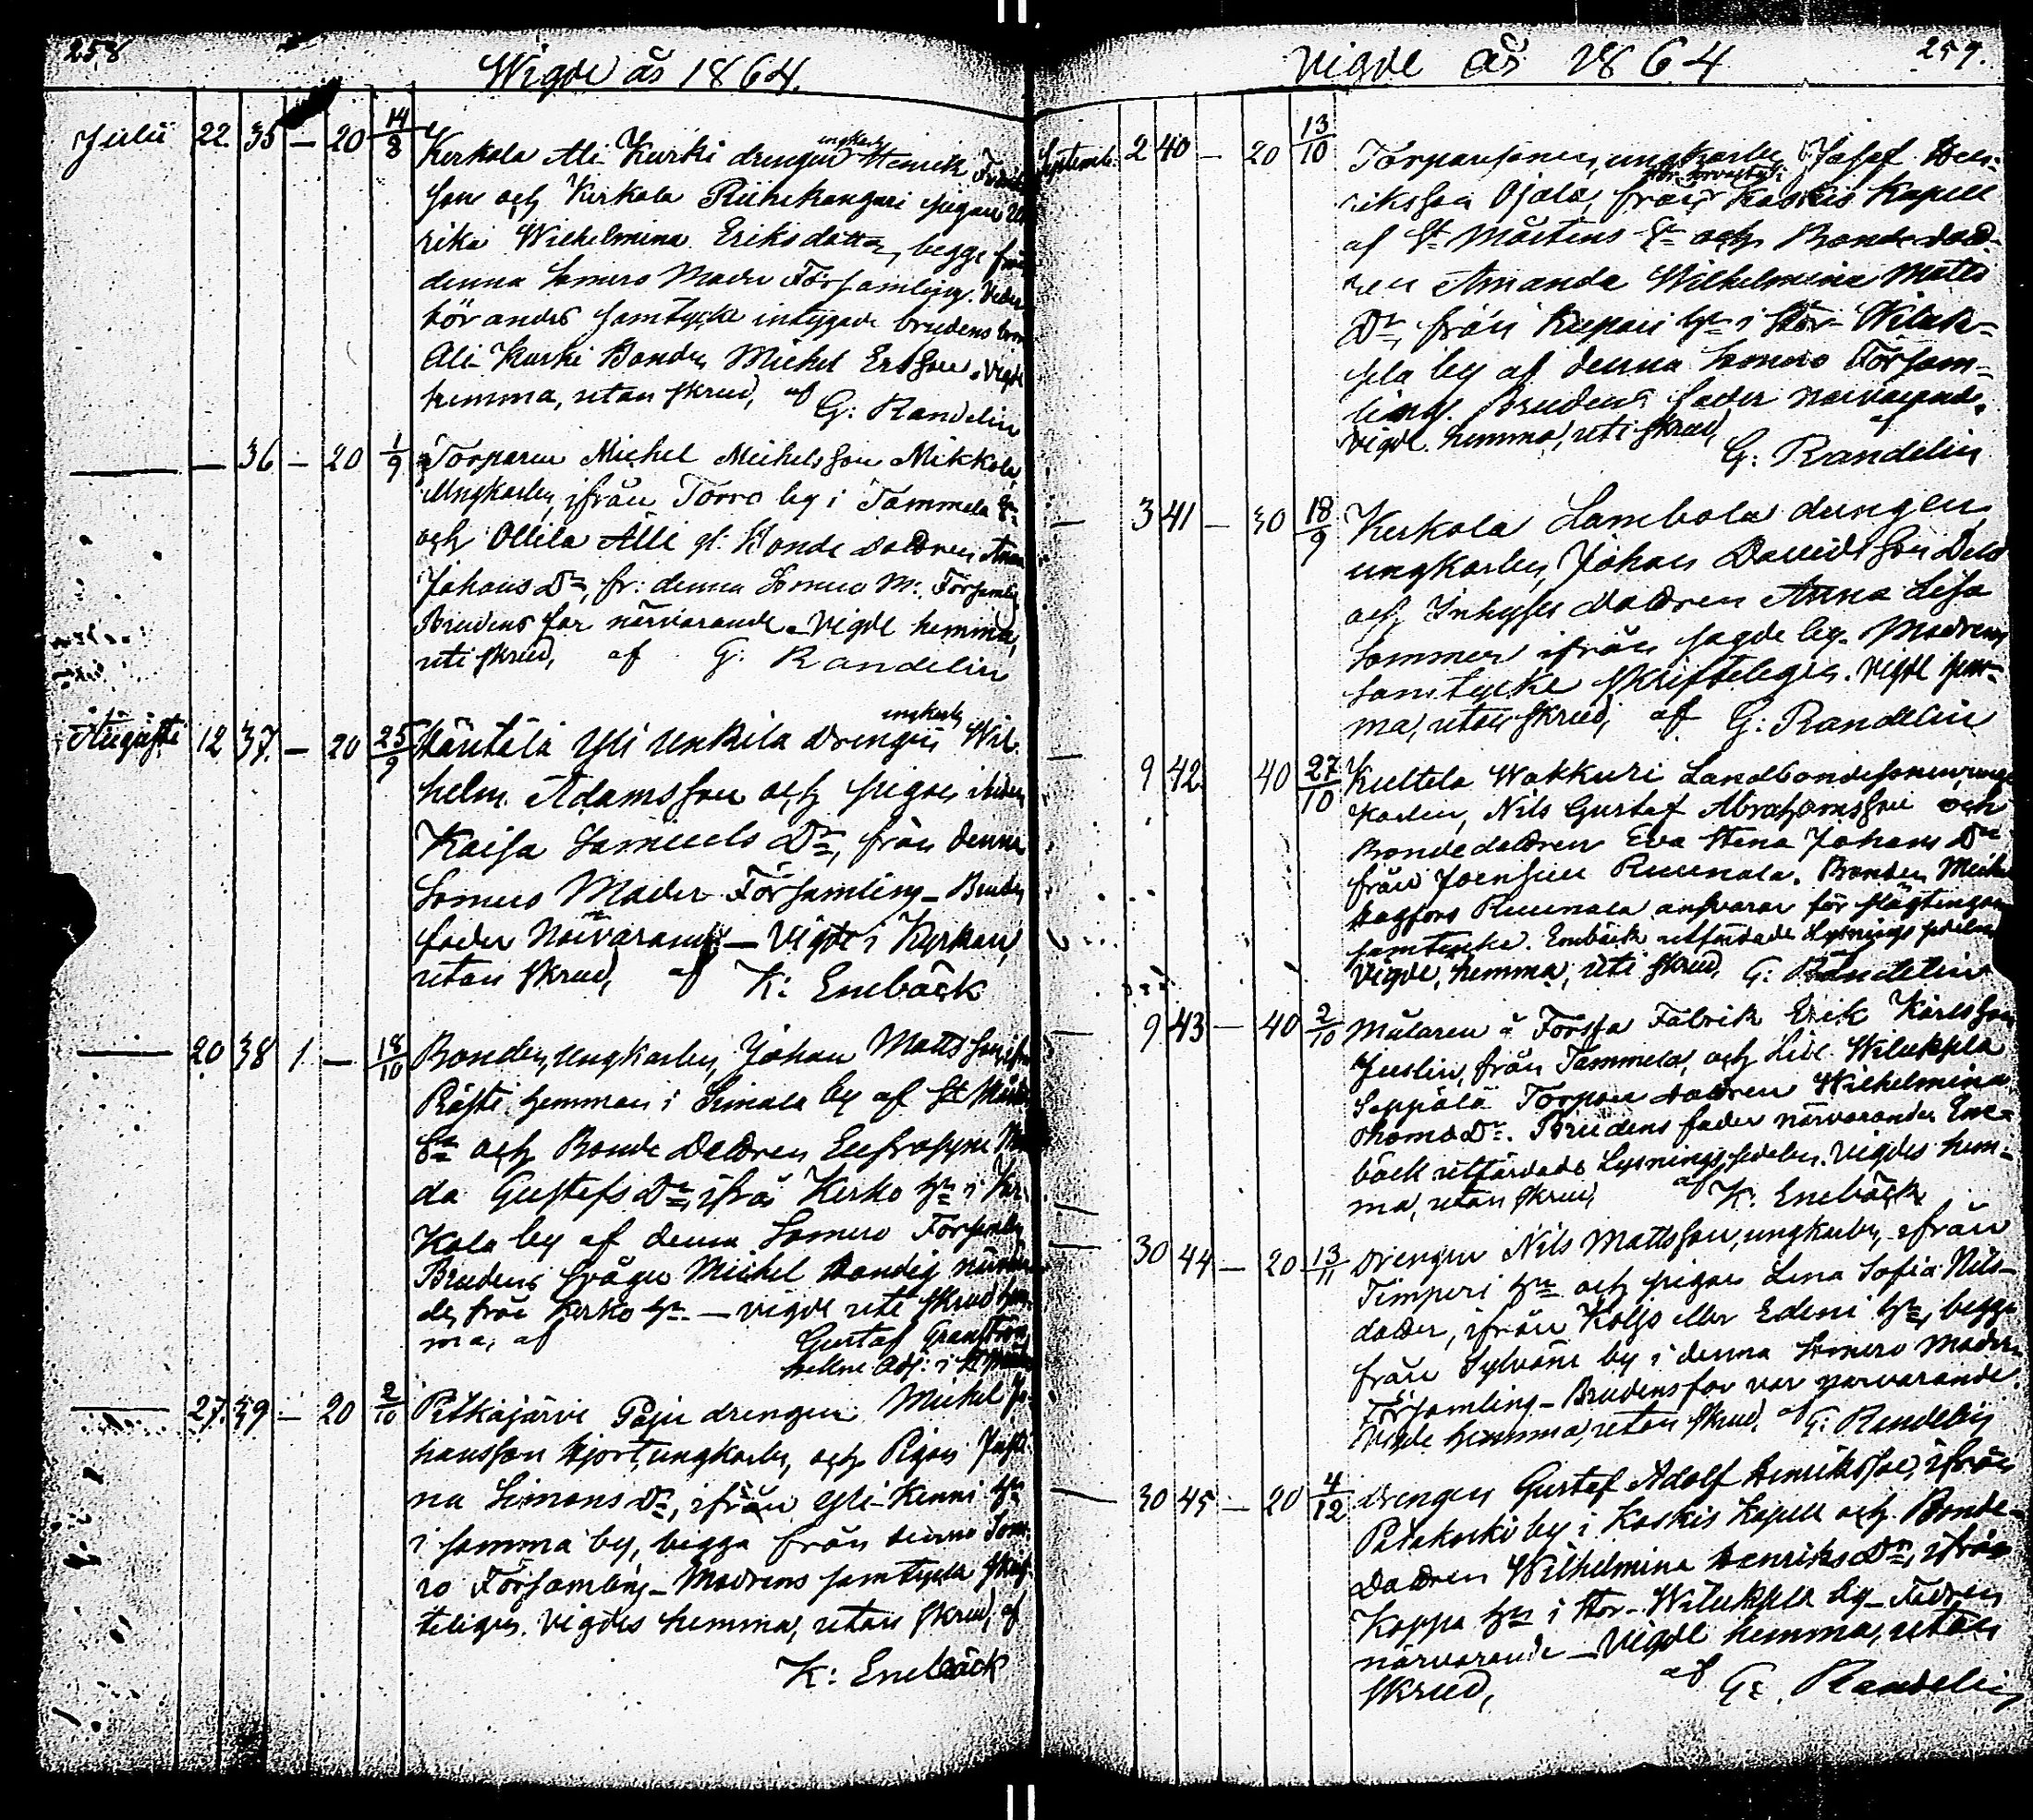 258
Wigde år 1864.
Julii 22. 35 — 20 14/8 Kerkola Ali Kurki drengen ungkarlen Henrik
son och Kerkola Riihikangari pigan
rika Wilhelmina Eriksdotter, begge från
denna Somero Moder Församling. Veder
börandes samtycke intygade brudens
Ali-Kurki Bonden Michel Ersson. Vigde
hemma, utan skrud, af G: Randelin
— — 36 — 20 1/9 Torparen Michel Michelsson Mikkola,
Ungkarlen, ifrån Torro by i Tammela Sn
och Ollila Alli gl. Bonde dottren Anna
Johans Dr, fr: denna Somero M: Församling
Brudens far närvarande. Vigde hemma,
uti skrud, af G: Randelin
Augusti 12 37. — 20 25/9 Häntälä Yli Unkila drengen ungkarlen Wil-
helm Adamsson och pigan
Kaisa Samuels Dr, från denna
Somero Moder Församling — Brudens
fader Närvarande — Vigde i Kyrkan,
utan skrud, af K: Enebäck
— 20 38 1 — 18/10 Bonden, Ungkarlen, Johan Mattsson, ifrån
Rästi hemman i Simala by af St Mårtens
Sn och Bonde Dottren Eufrosyne
da Gustafs Dr, ifrån Kerko Hn i Ker-
kola by af denna Somero Församling
Brudens svåger Michel närvaran-
de, från Kerko Hn. — vigde uti skrud hem-
ma, af Gustaf Granström
Adj: i St Mårtens
— 27. 39 — 20 2/10 Pitkäjärvi Paju drengen Michel Jo-
hansson Hjort, ungkarlen, och Pigan Justi-
na Simons Dr, ifrån Yli-Kenni Hn
i samma by, begge från denna Some-
ro Församling — Modrens samtycke skrif-
teligen. Vigdes hemma, utan skrud, af
K: Enebäck
259.
Vigde år 1864
September 2 40 — 20 13/10 Torparesonen, ungkarlen Josef Hen-
riksson Ojala, från Koskis Kapell
af St Mårtens Sn och Bonde dot-
tren Amanda Wilhelmina Matts
Dr, från Kupari Hn i Stor-Wiluk-
sela by af denna Somero Försam-
ling. Brudens fader närvarande.
Vigde hemma, uti skrud, af
G: Randelin
— 3 41 — 30 18/9 Kerkola Lambola drengen,
ungkarlen, Johan Davidsson
och Inhyses dottren Anna Lisa
Sommer ifrån sagde by. Modrens
samtycke skrifteligen. Vigde hem-
ma, utan skrud, af G: Randelin
— 9 42 40 27/10 Kultela Wakkuri Landbondesonen, ung-
karlen, Nils Gustaf Abrahamsson och
Bondedottren Eva Stena Johans Dr
från Joensuu Ruunala. Bonden Michel
Hagfors Ruunala ansvarar för slägtingars
samtycke. Enebäck utfärdade Lysnings sedeln
Vigde, hemma, uti skrud, G: Randelin
— 9 43 — 40 2/10 Målaren å Forssa Fabrik Erik Karlsson
Juslin, från Tammela, och Lill Wiluksela
Seppälä Torpare dottren Wilhelmina
Thomas Dr. Brudens fader närvarande. Ene-
bäck utfärdade Lysningssedeln. Vigdes hem-
ma, utan skrud, af K: Enebäck
— 30 44 — 20 13/11 Drengen Nils Mattsson, ungkarlen, ifrån
Timperi Hn och pigan Lena Sofia Nils-
dotter, ifrån Kolso eller Edeni Hn, begge
från Sylväne by i denna Somero Moder
Församling — Brudens far var närvarande.
Vigde hemma, utan skrud, af G: Randelin
— 30 45 — 20 4/12 drengen Gustaf Adolf Henriksson, ifrån
Patakoski by i Koskis Kapell och Bonde-
Dottren Wilhelmina Henriks Dr, ifrån
Koppa Hn i Stor-Wiluksela by — Fadren
närvarande — Vigde hemma, utan
skrud, af G: Randelin